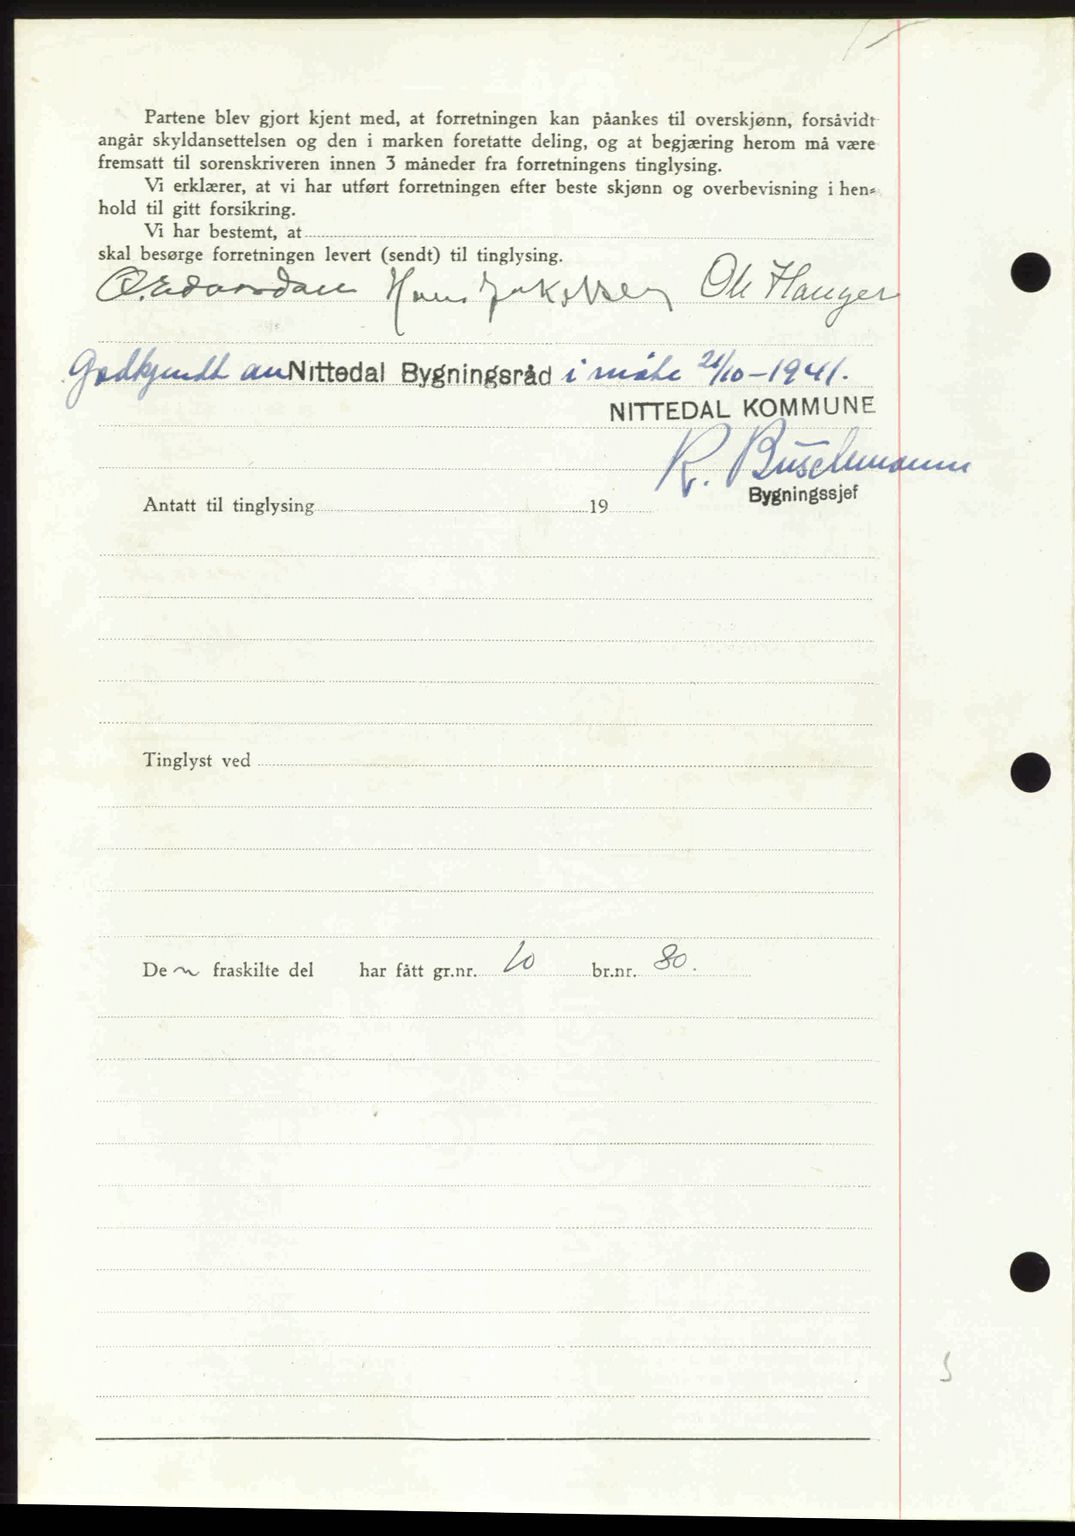 Partene blev gjort kjent med, at forretningen kan påankes til overskjønn, forsåvidt
angår skyldansettelsen og den i marken foretatte deling, og at begjæring herom må være
fremsatt til sorenskriveren innen 3 måneder fra forretningens tinglysing.
Vi erklærer, at vi har utført forretningen efter beste skjønn og overbevisning i hen-
hold til gitt forsikring.
Vi har bestemt, at
skal besørge forretningen levert (sendt) til tinglysing.
Hans Jakobsen Ole Hauger
Godkjendt av Nittedal Bygningsråd i møte 21/10-1941.
NITTEDAL KOMMUNE
R. Buschmann
Bygningssjef
Antatt til tinglysing 19
Tinglyst ved
De n fraskilte del har fått gr.nr. 10 br.nr. 80.